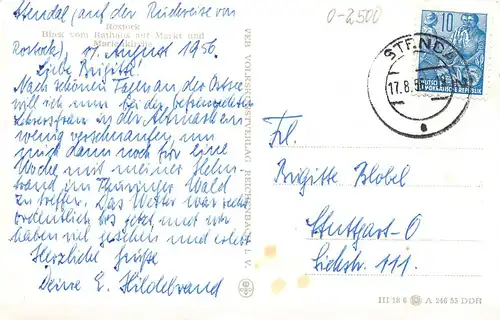 0-2500
Stendal (auf der Rückreise von
Rostock
Blick vom Rathaus auf Markt und
Marienkirche
Rostock), 17. August 1956.
Liebe Brigitte.
Nach schönen Tagen an der Ostsee
will ich nun bei der befreundeten
in der Altmark ein
wenig verschnaufen, um
mich dann noch für eine
Woche mit meiner
im Thüringer Wald
zu treffen. Das Wetter war recht
ordentlich bis jetzt, und wir
haben viel gesehen und erlebt.
Herzliche Grüße
Deine E. Hildebrand
VEB VOLKSKUNSTVERLAG REICHENBACH I. V.
10
DEUTSCHE
DEMOKRATISCHE REPUBLIK
STENDAL
17.8.56
Frl.
Brigitte Blobel
Stuttgart-O
111.
III 18 6 A 246 55 DDR